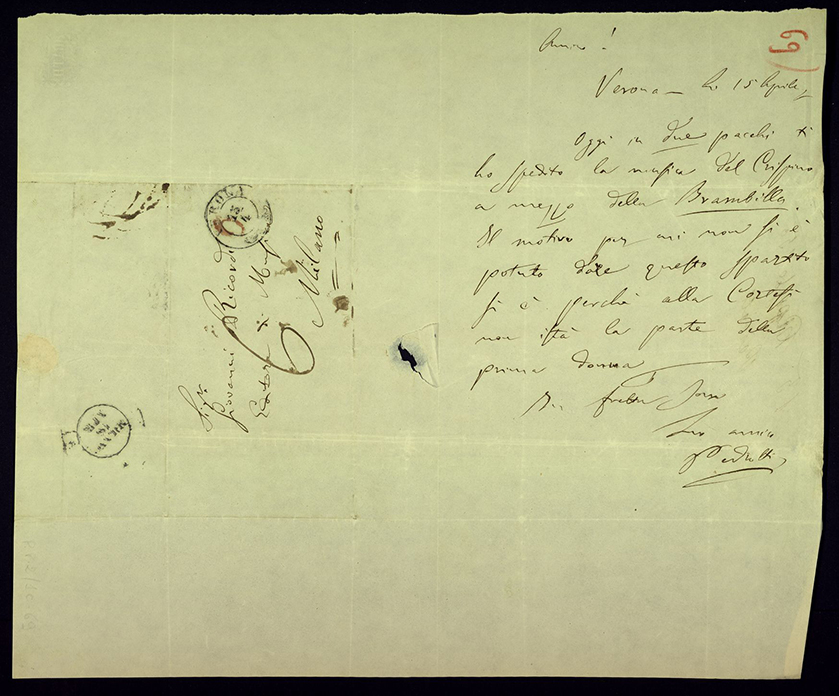 69)
Amico!
Verona – li 15 Aprile
Oggi in due pacchi ti
ho spedito la musica del Crispino
a mezzo della Brambilla.
Il motivo per cui non si è
potuto dare questo spartito
si è perchè alla Cortesi
non istà la parte della
prima donna
In fretta sono
Suo amico
Pedrotti
Sigr.
Giovanni Ricordi
Editore di Musica
Milano
6
MILANO
APR